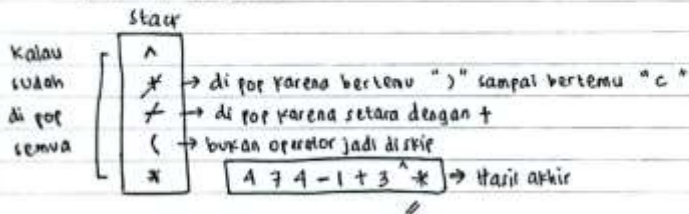 Stack
Kalau sudah di pop semua
^
* → di pop karena bertemu ")" sampai bertemu "("
+ → di pop karena setara dengan +
( → bukan operator jadi di skip
*
4 7 4 - 1 + 3 ^ * → Hasil akhir